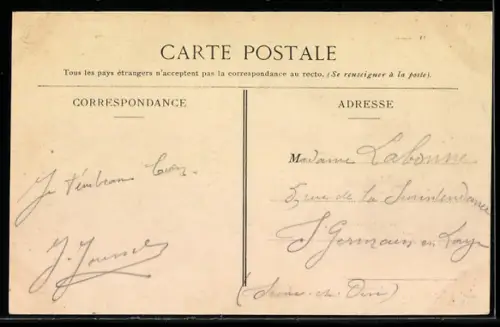 CARTE POSTALE
Tous les pays étrangers n'acceptent pas la correspondance au recto. (Se renseigner à la poste).
CORRESPONDANCE
ADRESSE
Madame Labonne
5, rue de la Surintendance
St Germain en Laye
(Seine et Oise)
Je
J.